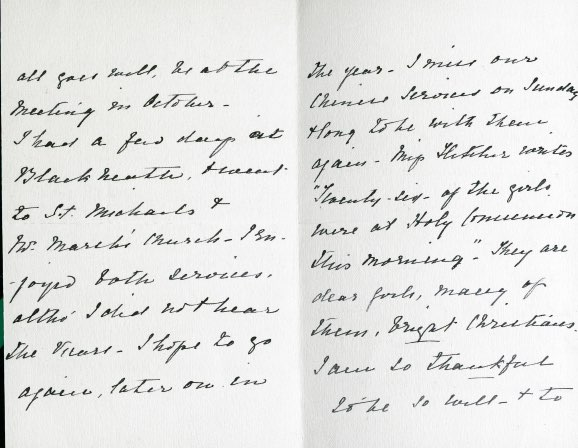 all goes well, be at the
meeting in October -
I had a few days at
Blackheath, & went
to St. Michaels &
Mr. March's Church - I en-
-joyed both services,
altho' I did not hear
the Vicars - I hope to go
again, later on in
the year - I miss our
Chinese Services on Sunday
& long to be with them
again - Miss Fletcher writes
"Twenty-six - of the girls
were at Holy Communion
this morning." They are
dear girls, many of
them, bright Christians.
I am so thankful
to be so well - & to